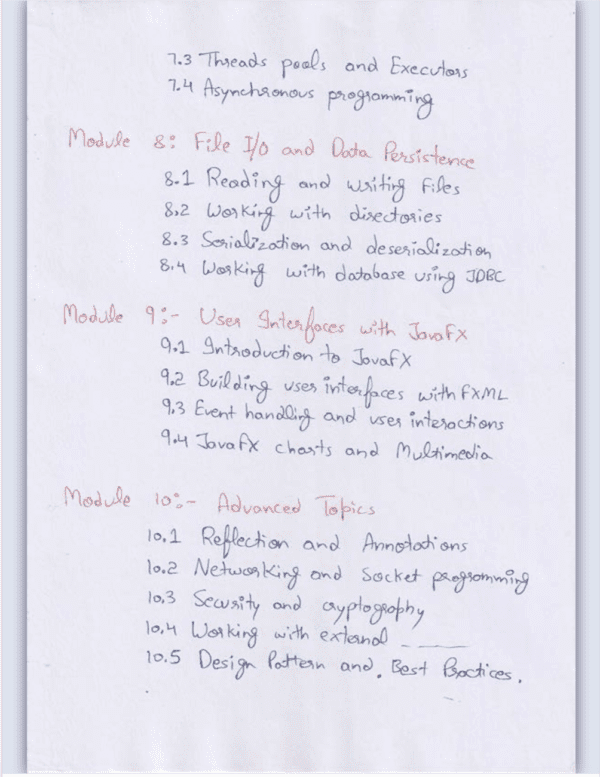 7.3 Threads pools and Executors
7.4 Asynchronous programming
Module 8: File I/o and Data Persistence
8.1 Reading and writing files
8.2 Working with directories
8.3 Serialization and deserialization
8.4 Working with database using JDBC
Module 9:- User Interfaces with JavaFX
9.1 Introduction to JavaFX
9.2 Building user interfaces with FXML
9.3 Event handling and user interactions
9.4 JavaFX charts and Multimedia
Module 10:- Advanced Topics
10.1 Reflection and Annotations
10.2 Networking and Socket programming
10.3 Security and cryptography
10.4 Working with external _ _____
10.5 Design Pattern and. Best Practices.